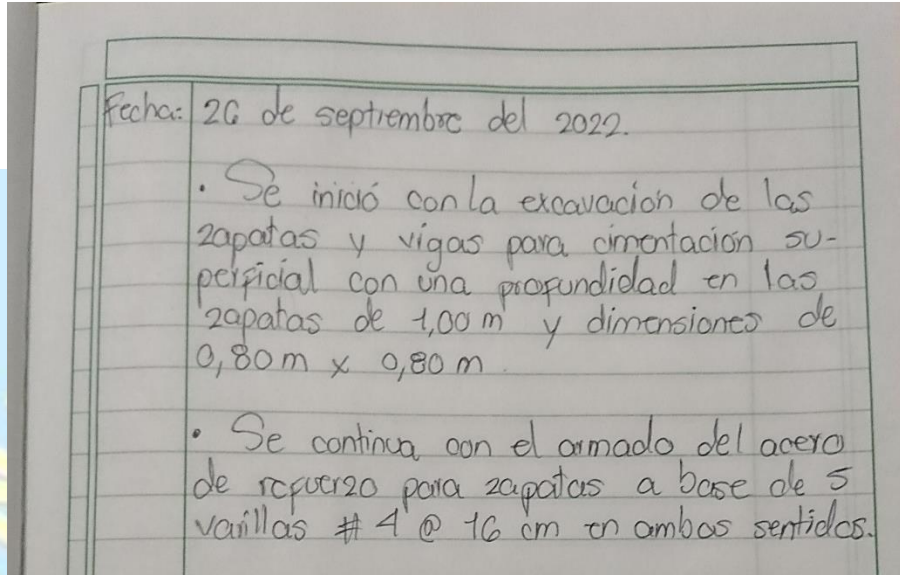 Fecha: 26 de septiembre del 2022.
• Se inició con la excavación de las
zapatas y vigas para cimentación su-
perficial con una profundidad en las
zapatas de 1,00 m y dimensiones de
0,80 m x 0,80 m.
• Se continua con el armado del acero
de refuerzo para zapatas a base de 5
varillas # 4 @ 16 cm en ambos sentidos.